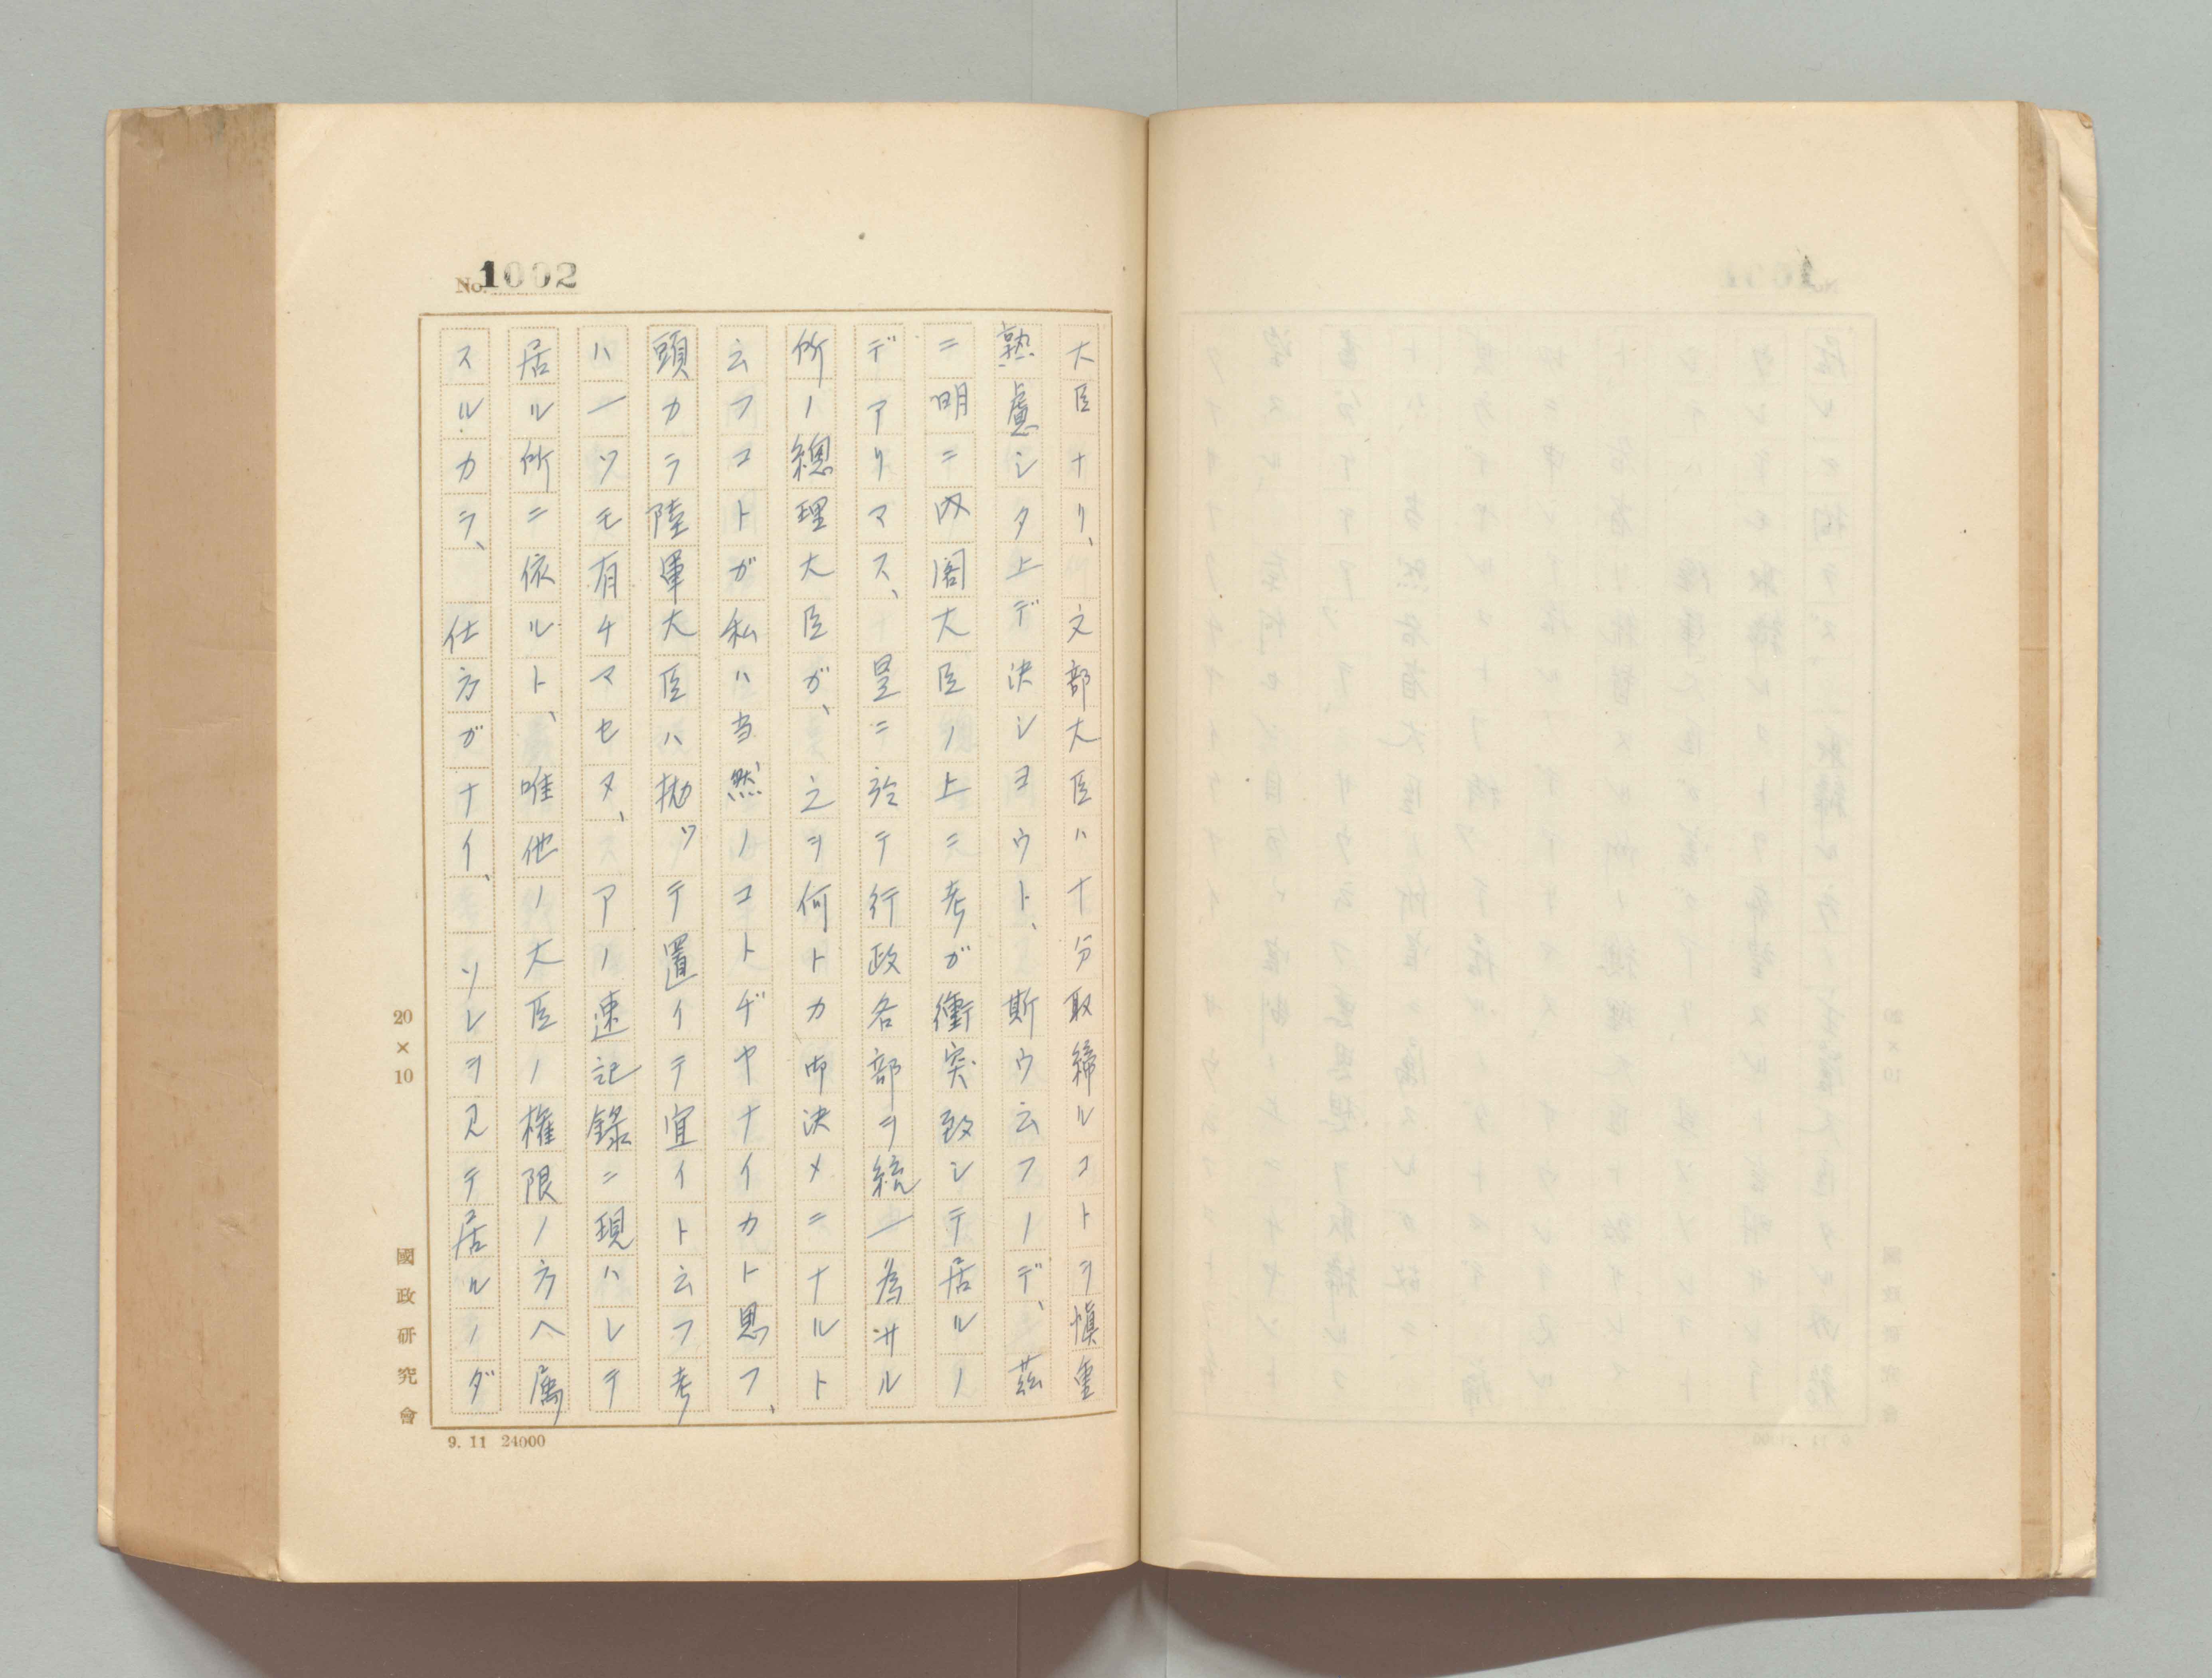 No. 1002
大臣ナリ、文部大臣ハ十分取締ルコトヲ慎重
熟慮シタ上デ決シヨウト、斯ウ云フノデ、茲
ニ明ニ内閣大臣ノ上ニ考ガ衝突致シテ居ルノ
デアリマス、是ニ於テ行政各部ヲ統一為サル
所ノ總理大臣ガ、之ヲ何トカ御決メニナルト
云フコトガ私ハ当然ノコトヂヤナイカト思フ、
頭カラ陸軍大臣ハ拋ツテ置イテ宜イト云フ考
ハ一ツモ有チマセヌ、アノ速記錄ニ現ハレテ
居ル所ニ依ルト、唯他ノ大臣ノ權限ノ方ヘ属
スルカラ、仕方ガナイ、ソレヲ見テ居ルノダ
20×10
國政研究會
9. 11 24000